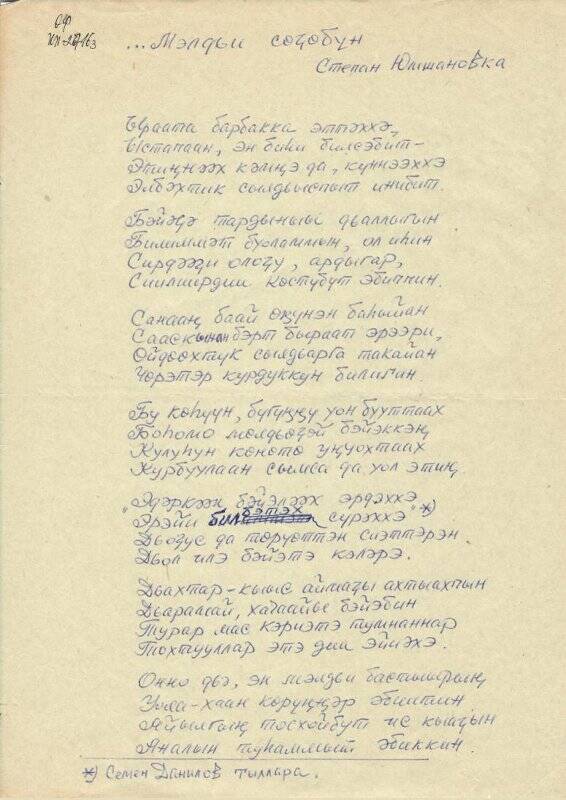 ОФ
КП-2716з
...Мэлдьи соҕобун
Степан Юмшановка
Ыраата барбакка эттэххэ,
Ыстапаан, эн биһи билсэбит-
Этиҥнээх кэмҥэ да, күннээххэ
Элбэхтик сылдьыспыт инибит.
Бэйэҕэ тардыныы дьаллыгын
Билиммэт буоламмын, ол иһин
Сирдээҕи олоҕу, ардыгар,
Сиилширдии көстүбүт эбиччин.
Санааҥ баай өҥүнэн баһыйан
Саас кынан бэрт быраат эрээри,
Ойдөөхтүк сылдьарга такайан
Үөрэтэр курдуккун билиҥин.
Бу көһүүн, бүгүҥҥү уон бууттаах
Боһомо молдьоҕой бэйэккэҥ
Кулуһун көнөтө уҥуохтаах
Курбуулаан сымса да уол этиҥ.
"Эдэркээн бэйэлээх эрдэххэ
Эрэйи билбэтэх сүрэххэ" *)
Дьоҕус да төрүөттэн сиэттэрэн
Дьол илэ бэйэтэ кэлэрэ.
Дьахтар-кыыс аймаҕы ахтыахпын
Дьаралыай, хаһаайые бэйэбин
Турар мас кэриэтэ туманнар
Тохтууллар этэ дии эйиэхэ.
Онно дьэ, эн мэлдьи бастыҥыҥ
Улa-хаан көрүҥҥэр эбиитин
Айылгыҥ тосхойбут ис кыаҕын
Аналын туһаммыт эбиккин.
*) Семен Данилов тыллара.